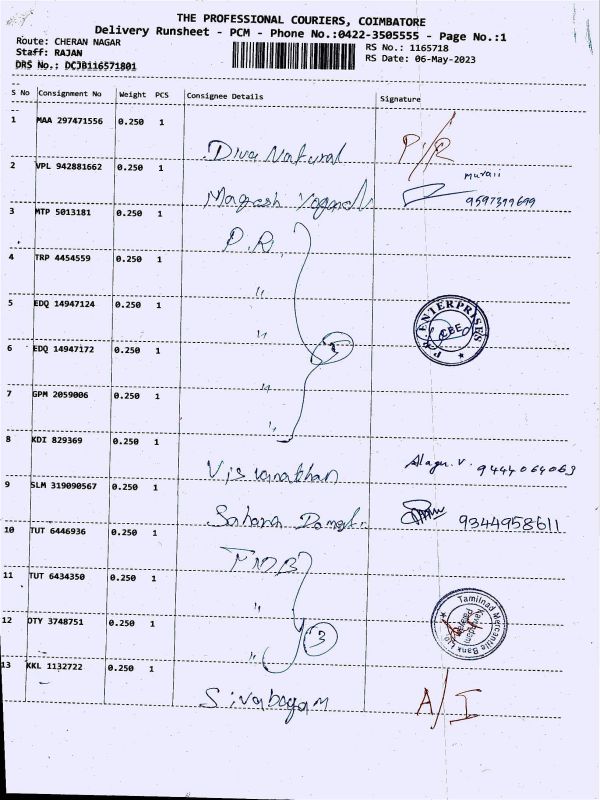 THE PROFESSIONAL COURIERS, COIMBATORE
Delivery Runsheet - PCM - Phone No.:0422-3505555 - Page No.:1
Route: CHERAN NAGAR
RS No.: 1165718
Staff: RAJAN
RS Date: 06-May-2023
DRS No.: DCJB116571801
S No Consignment No Weight PCS Consignee Details Signature
1 MAA 297471556 0.250 1 Diva Natural P/R
2 VPL 942881662 0.250 1 Magesh 9597399699
3 MTP 5013181 0.250 1 P.R.
4 TRP 4454559 0.250 1 "
5 EDQ 14947124 0.250 1 "
P.R. ENTERPRISES
CBE
6 EDQ 14947172 0.250 1 "
7 GPM 2059006 0.250 1 "
8 KDI 829369 0.250 1 Viswanathan Alagu.V. 9444064063
9 SLM 319090567 0.250 1 Sahara 9344958611
10 TUT 6446936 0.250 1 TMB
11 TUT 6434350 0.250 1 "
Tamilnad Mercantile Bank Ltd
12 OTY 3748751 0.250 1 " 3
13 KKL 1132722 0.250 1 Sivabogam A/I